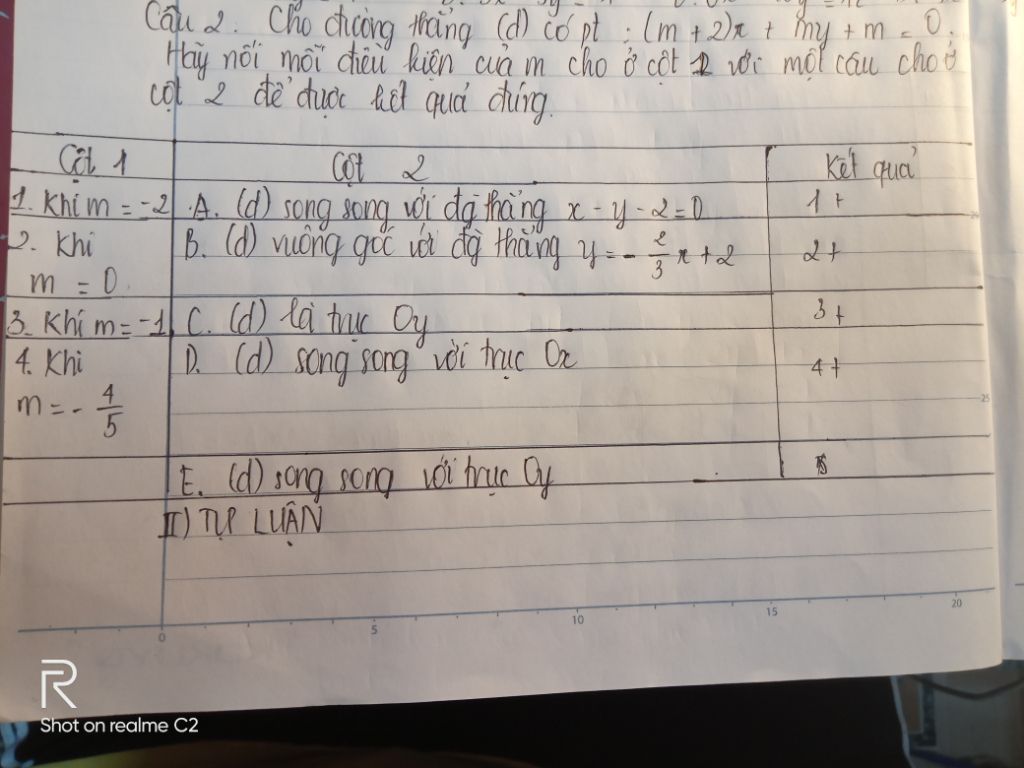 Câu 2: Cho đường thẳng (d) có pt : (m+2)x + my + m = 0.
Hãy nối mỗi điều kiện của m cho ở cột 1 với một câu cho ở
cột 2 để được kết quả đúng.
Cột 1 Cột 2 Kết quả
1. Khi m = -2 A. (d) song song với đg thẳng x - y - 2 = 0 1+
2. Khi B. (d) vuông góc với đg thẳng y = - 2/3 x + 2 2+
m = 0
3. Khi m = -1 C. (d) là trục Oy 3+
4. Khi D. (d) song song với trục Ox 4+
m = - 4/5
E. (d) song song với trục Oy
II) TỰ LUẬN
0 5 10 15 20
25
R
Shot on realme C2